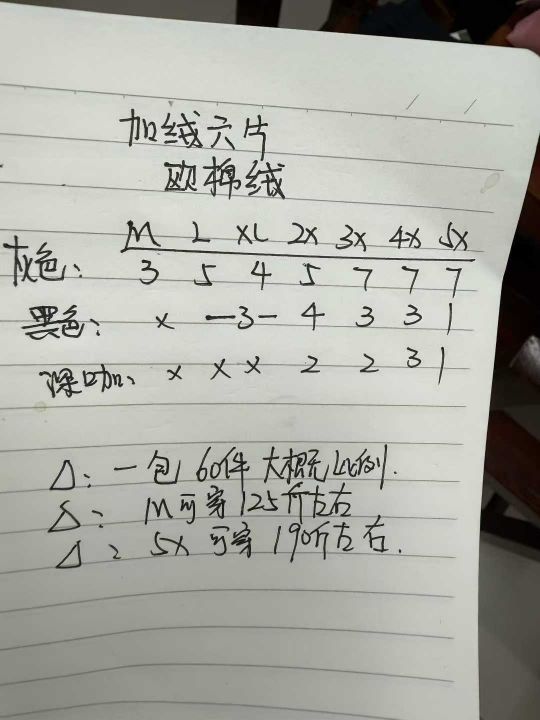 加绒六片
欧棉绒
M L XL 2X 3X 4X 5X
灰色: 3 5 4 5 7 7 7
黑色: x -3- 4 3 3 1
深咖、 x x x 2 2 3 1
△: 一包60件大概比例.
△: M可穿125斤左右
△: 5X可穿190斤左右.